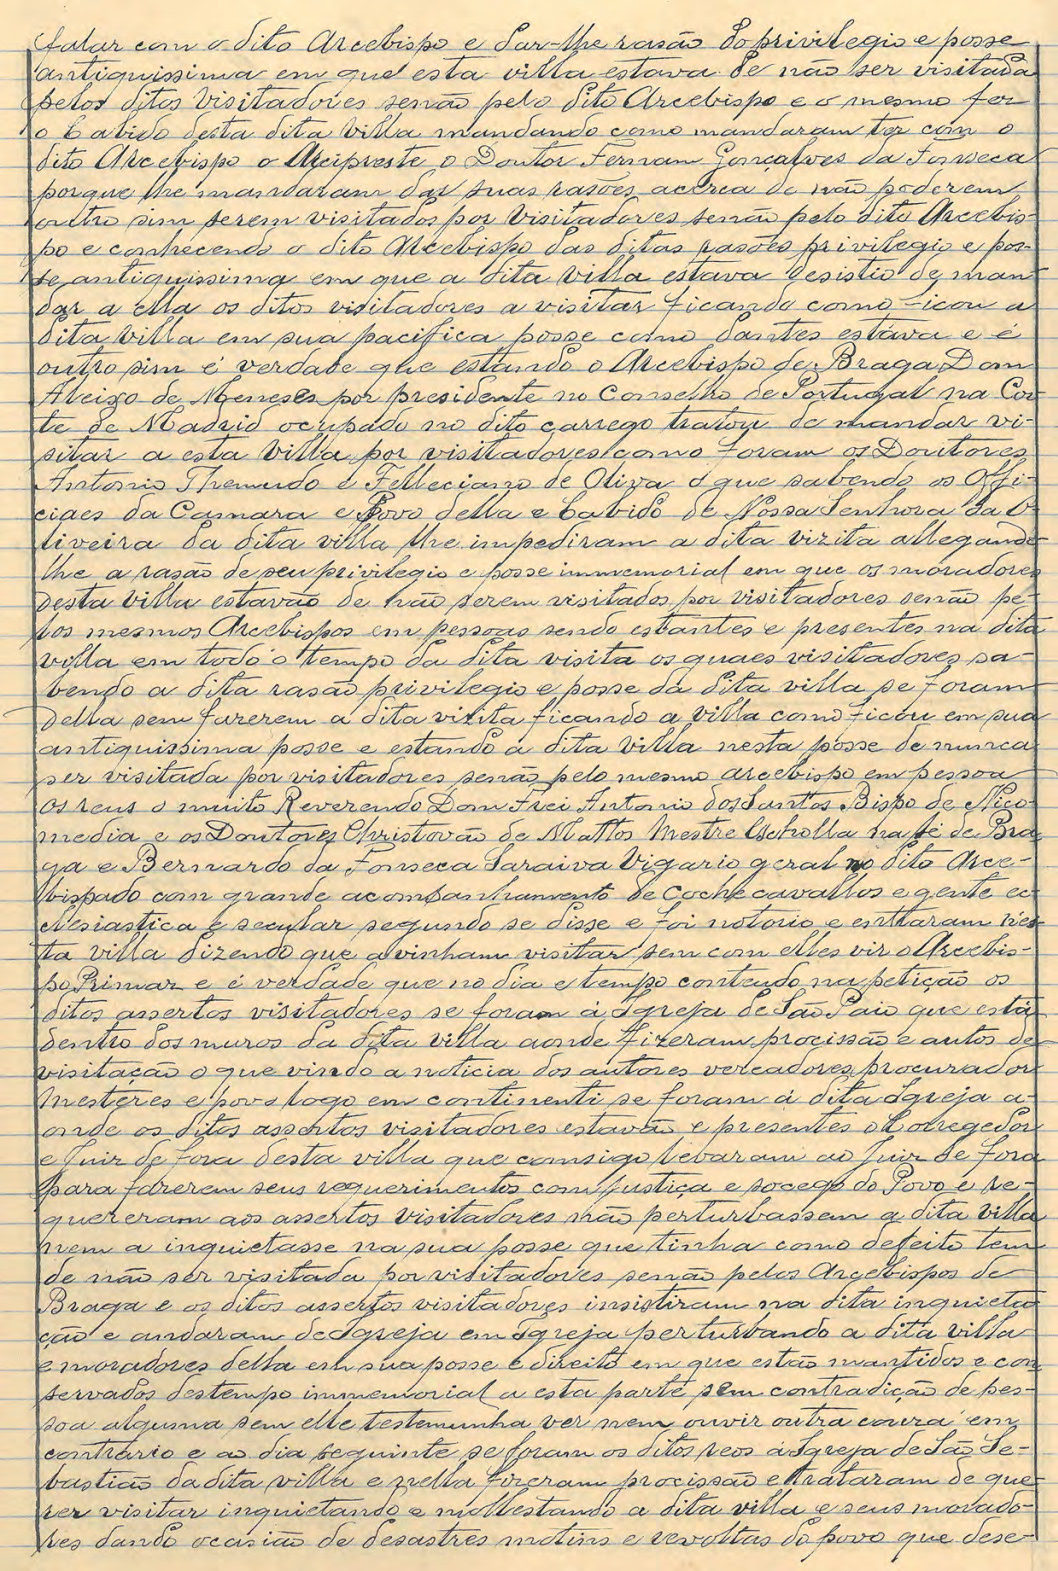 fular com o dito Arcebispo e dar-lhe rasão do privilegio e posse
antiquissima em que esta villa estava de não ser visitada
pelos ditos visitadores senão pelo dito Arcebispo e o mesmo fez
o Cabido desta dita villa mandando como mandaram ter com o
dito Arcebispo o Arcipreste o Doutor Fernam Gonçalves da Fonseca
porque lhe mandaram dar suas rasões acerca de não poderem
outro sim serem visitados por visitadores senão pelo dito Arcebis-
po e conhecendo o dito Arcebispo das ditas rasões privilegio e pos-
se antiquissima em que a dita villa estava desistio de man-
dar a ella os ditos visitadores a visitar ficando como ficou a
dita villa em sua pacifica posse como dantes estava e é
outro sim é verdade que estando o Arcebispo de Braga Dom
Aleixo de Meneses por presidente no Conselho de Portugal na Cor-
te de Madrid ocupado no dito carrego tratou de mandar vi-
sitar a esta villa por visitadores como foram os Doutores
Antonio Themudo e Felleciano de Oliva o que sabendo os Offi-
ciaes da Camara e Povo della e Cabido de Nossa Senhora da O-
liveira da dita villa lhe impediram a dita vizita allegando-
lhe a rasão de seu privilegio e posse immemorial em que os moradores
desta villa estavão de não serem visitados por visitadores senão pe-
los mesmos Arcebispos em pessoas sendo estantes e presentes na dita
villa em todo o tempo da dita visita os quaes visitadores sa-
bendo a dita rasão privilegio e posse da dita villa se foram
della sem fazerem a dita visita ficando a villa como ficou em sua
antiquissima posse e estando a dita villa nesta posse de nunca
ser visitada por visitadores senão pelo mesmo arcebispo em pessoa
os reus o muito Reverendo Dom Frei Antonio dos Santos Bispo de Nico-
media e os Doutores Christovão de Mattos Mestre Escholla na Sé de Bra-
ga e Bernardo da Fonseca Saraiva Vigario geral no dito Arce-
bispado com grande acompanhamento de coche cavallos e gente ec-
clesiastica e secular segundo se disse e foi notorio e entraram nes-
ta villa dizendo que a vinham visitar sem com elles vir o Arcebis-
po Primaz e é verdade que no dia e tempo conteudo na petição os
ditos assertos visitadores se foram á Igreja de São Paio que está
dentro dos muros da dita villa aonde fizeram procissão e autos de
visitação o que vindo a noticia dos autores vereadores procurador
Mesteres e povo logo em continenti se foram á dita Igreja a-
onde os ditos assertos visitadores estavão e presentes o Corregedor
e Juiz de fora desta villa que comsigo levaram ao Juiz de fora
para fazerem seus requerimentos com justiça e socego do Povo e re-
quereram aos assertos visitadores não perturbassem a dita villa
nem a inquietasse na sua posse que tinha como defeito tem
de não ser visitada por visitadores senão pelos Arcebispos de
Braga e os ditos assertos visitadores insistiram na dita inquieta-
ção e andaram de Igreja em Igreja perturbando a dita villa
e moradores della em sua posse e direito em que estão mantidos e con-
servados des tempo immemorial a esta parte sem contradição de pes-
soa alguma sem elle testemunha ver nem ouvir outra couza em
contrario e ao dia seguinte se foram os ditos reos á Igreja de São Se-
bastião da dita villa e nella fizeram procissão e trataram de que-
rer visitar inquietando e mollestando a dita villa e seus morado-
res dando occasião de desastres motins e revoltas do povo que dese-